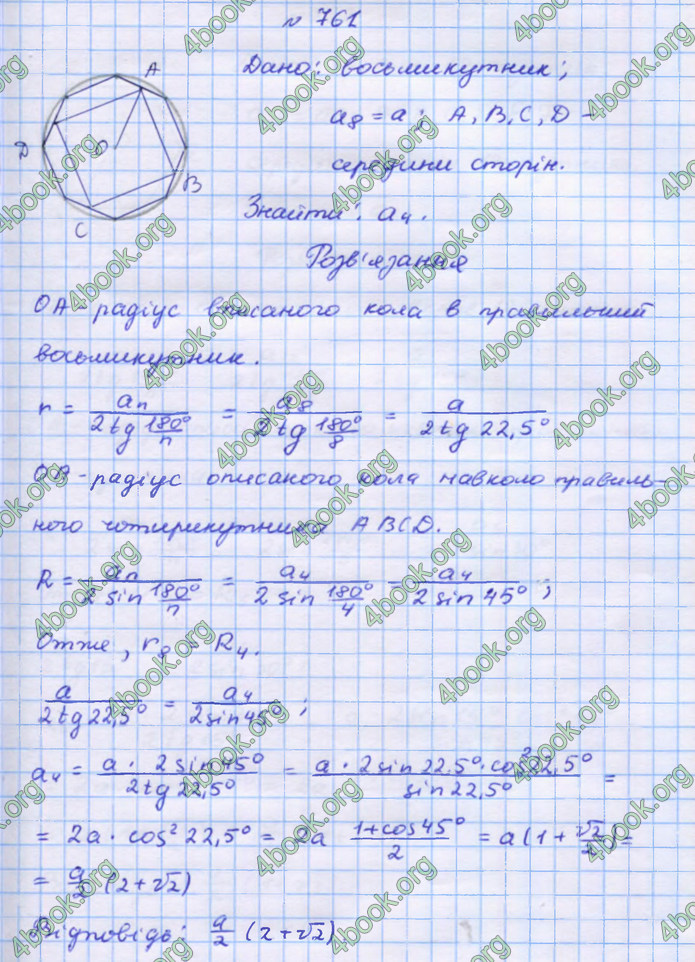 № 761
A
D
O
B
C
Дано: восьмикутник;
a₈ = a; A, B, C, D -
середини сторін.
Знайти: a₄.
Розв'язання
OA - радіус вписаного кола в правильний
восьмикутник.
r = aₙ / (2tg 180°/n) = a₈ / (2tg 180°/8) = a / (2tg 22,5°)
OA - радіус описаного кола навколо правиль-
ного чотирикутника ABCD.
R = aₙ / (2 sin 180°/n) = a₄ / (2 sin 180°/4) = a₄ / (2 sin 45°);
Отже, r₈ = R₄.
a / (2tg 22,5°) = a₄ / (2sin 45°);
a₄ = (a · 2 sin 45°) / (2tg 22,5°) = (a · 2 sin 22,5° · cos² 22,5°) / (sin 22,5°) =
= 2a · cos² 22,5° = 2a (1 + cos 45°) / 2 = a (1 + √2/2) =
= a/2 (2 + √2)
Відповідь: a/2 (2 + √2)
4book.org